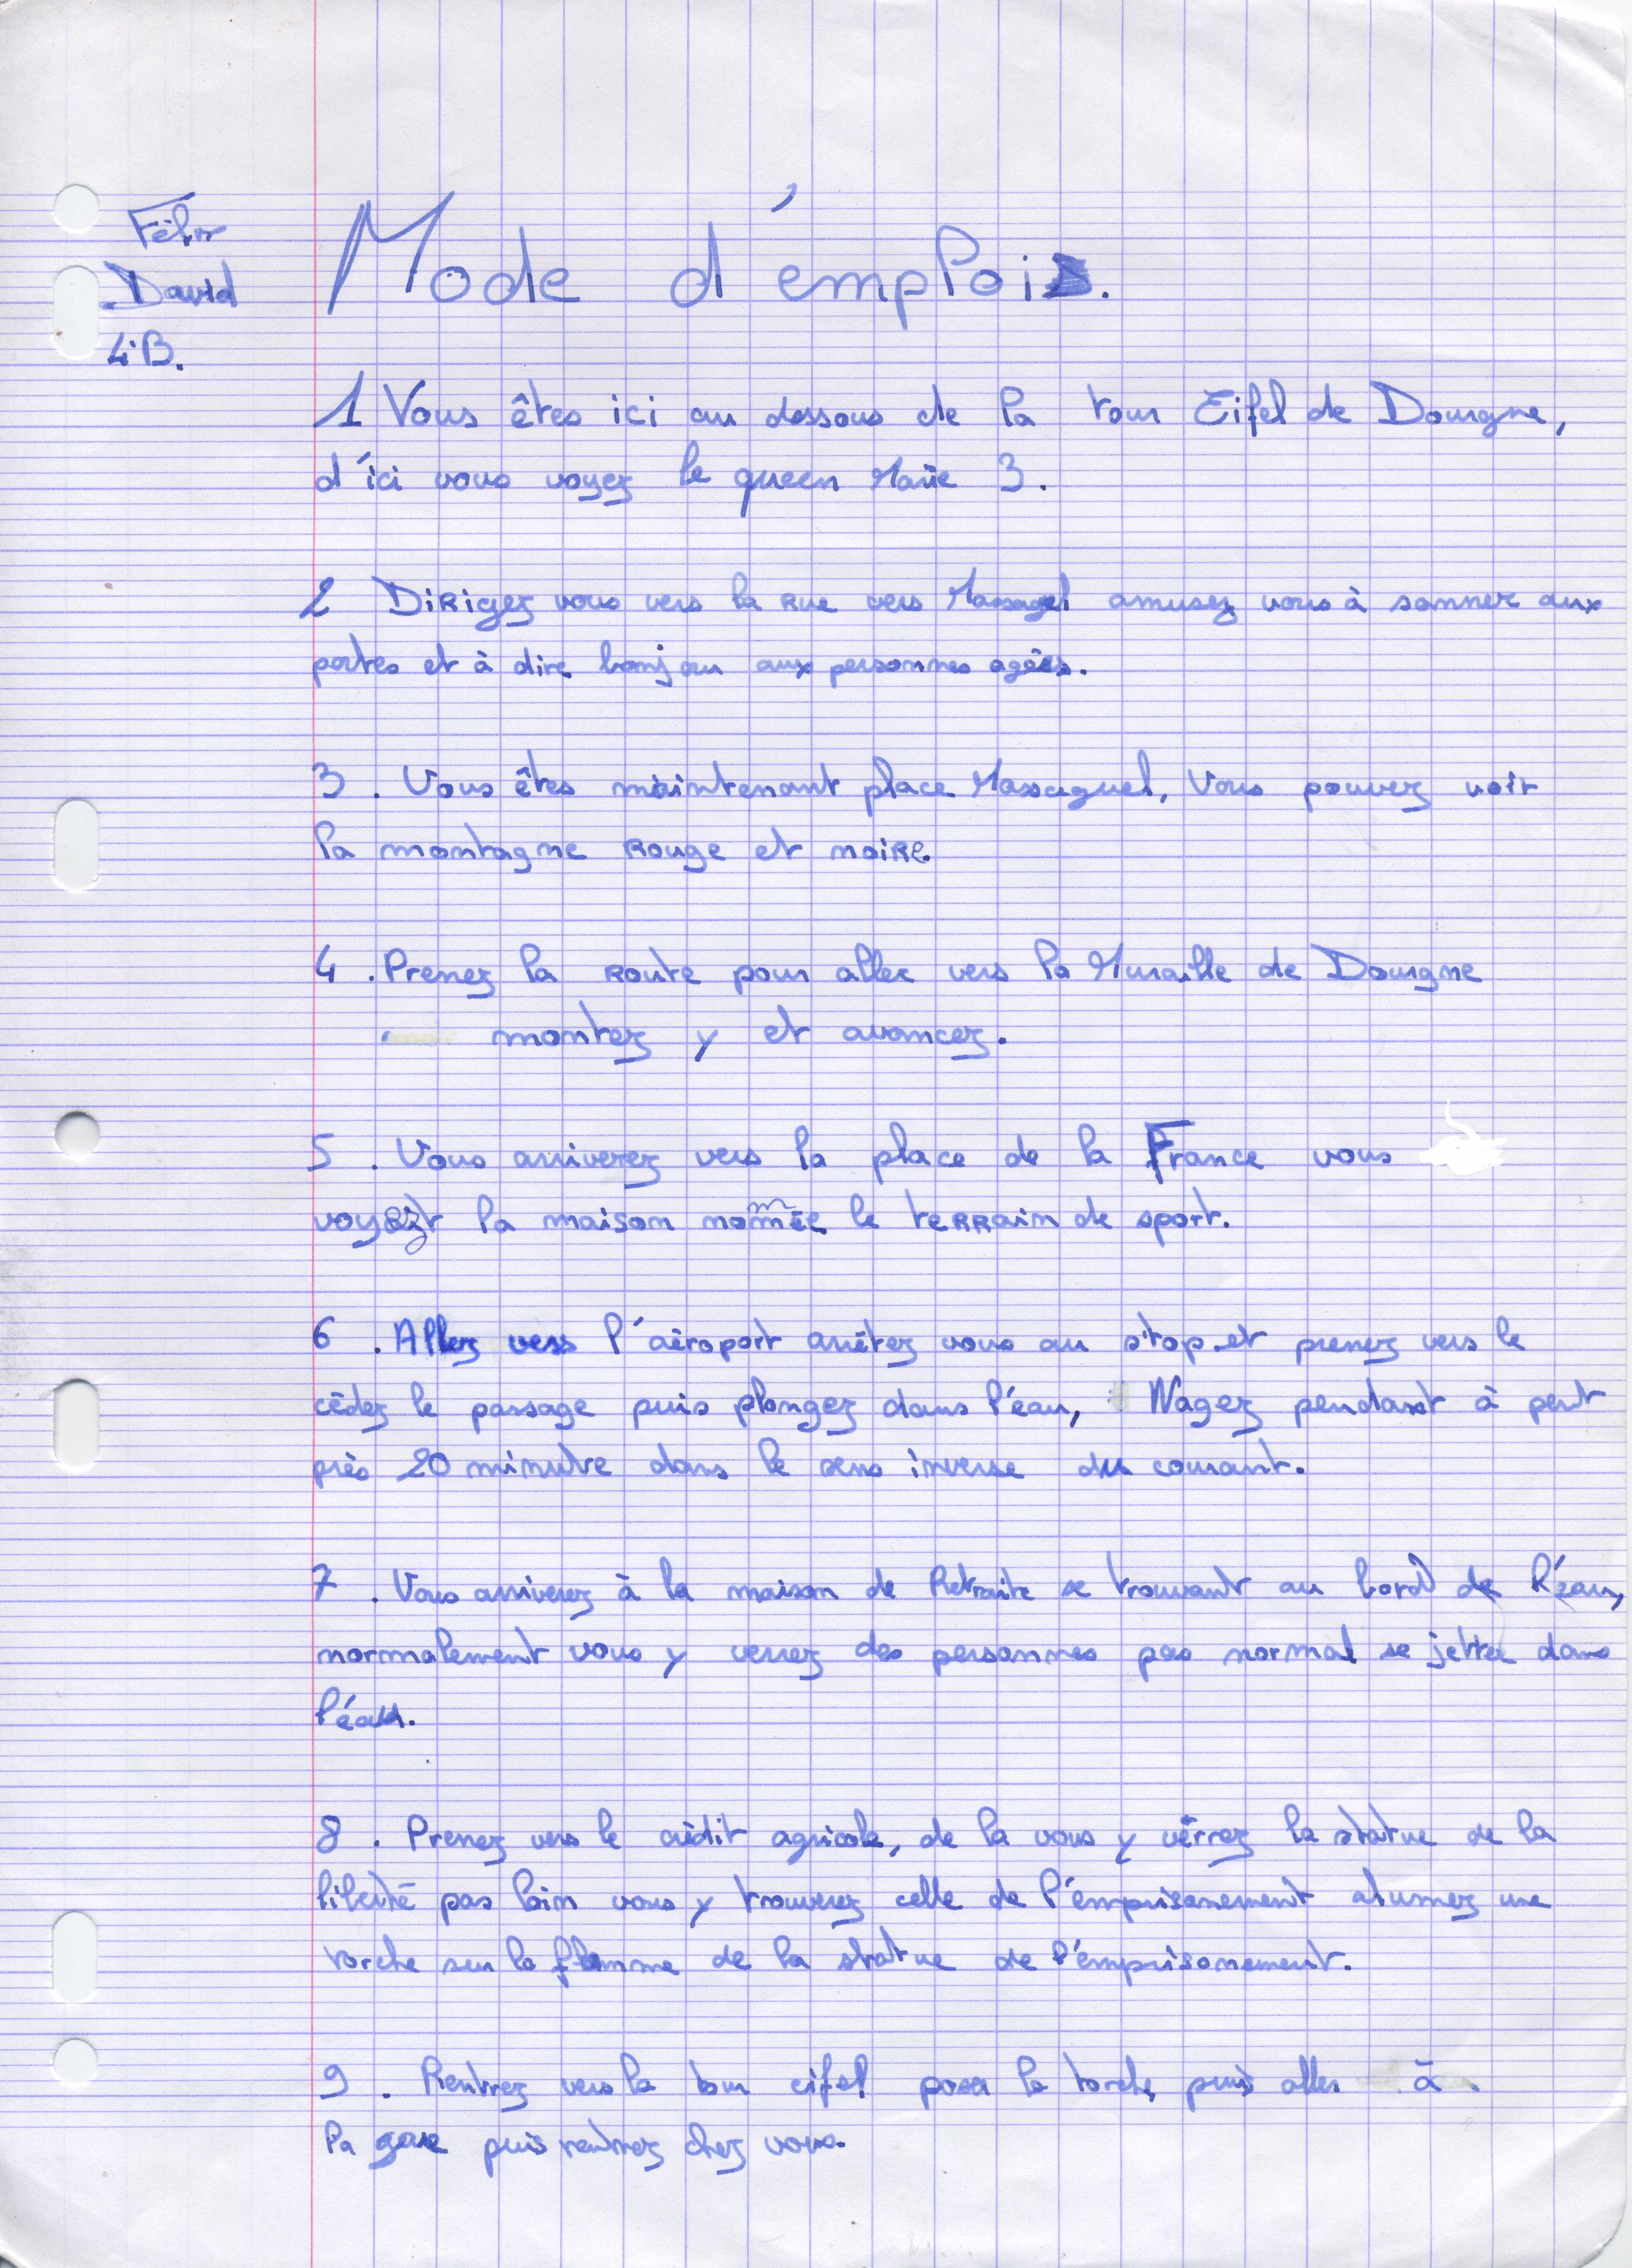 Félix
David
4°B.
Mode d'emploi.
1 Vous êtes ici au dessous de la tour Eifel de Dourgne,
d'ici vous voyez le queen Marie 3.
2 Dirigez vous vers la rue vers Massagel amusez vous à sonner aux
portes et à dire bonjou aux personnes agées.
3 . Vous êtes maintenant place Massaguel, Vous pouvez voir
la montagne rouge et noire
4 . Prenez la route pour aller vers la Muraille de Dourgne
montez y et avancez.
5 . Vous arriverez vers la place de la France vous
la maison nommée le terrain de sport.
6 . Allez vers l'aéroport arrêtez vous au stop et prenez vers le
cédez le passage puis plongez dans l'éau, Nagez pendant à peut
près 20 minutre dans le sens inverse du courant.
7 . Vous arriverez à la maison de Retraite se trouvant au bord de l'éau,
normalement vous y verrez des personnes pas normal se jetter dans
l'éau.
8 . Prenez vers le crédit agricole, de la vous y vérrez la statue de la
liberté pas loin vous y trouverez celle de l'emprisonement alumez une
torche sur la flamme de la statue de l'emprisonement.
9 . Rentrez vers la tour eifel la torche puis à
la gare puis rentrez chez vous.